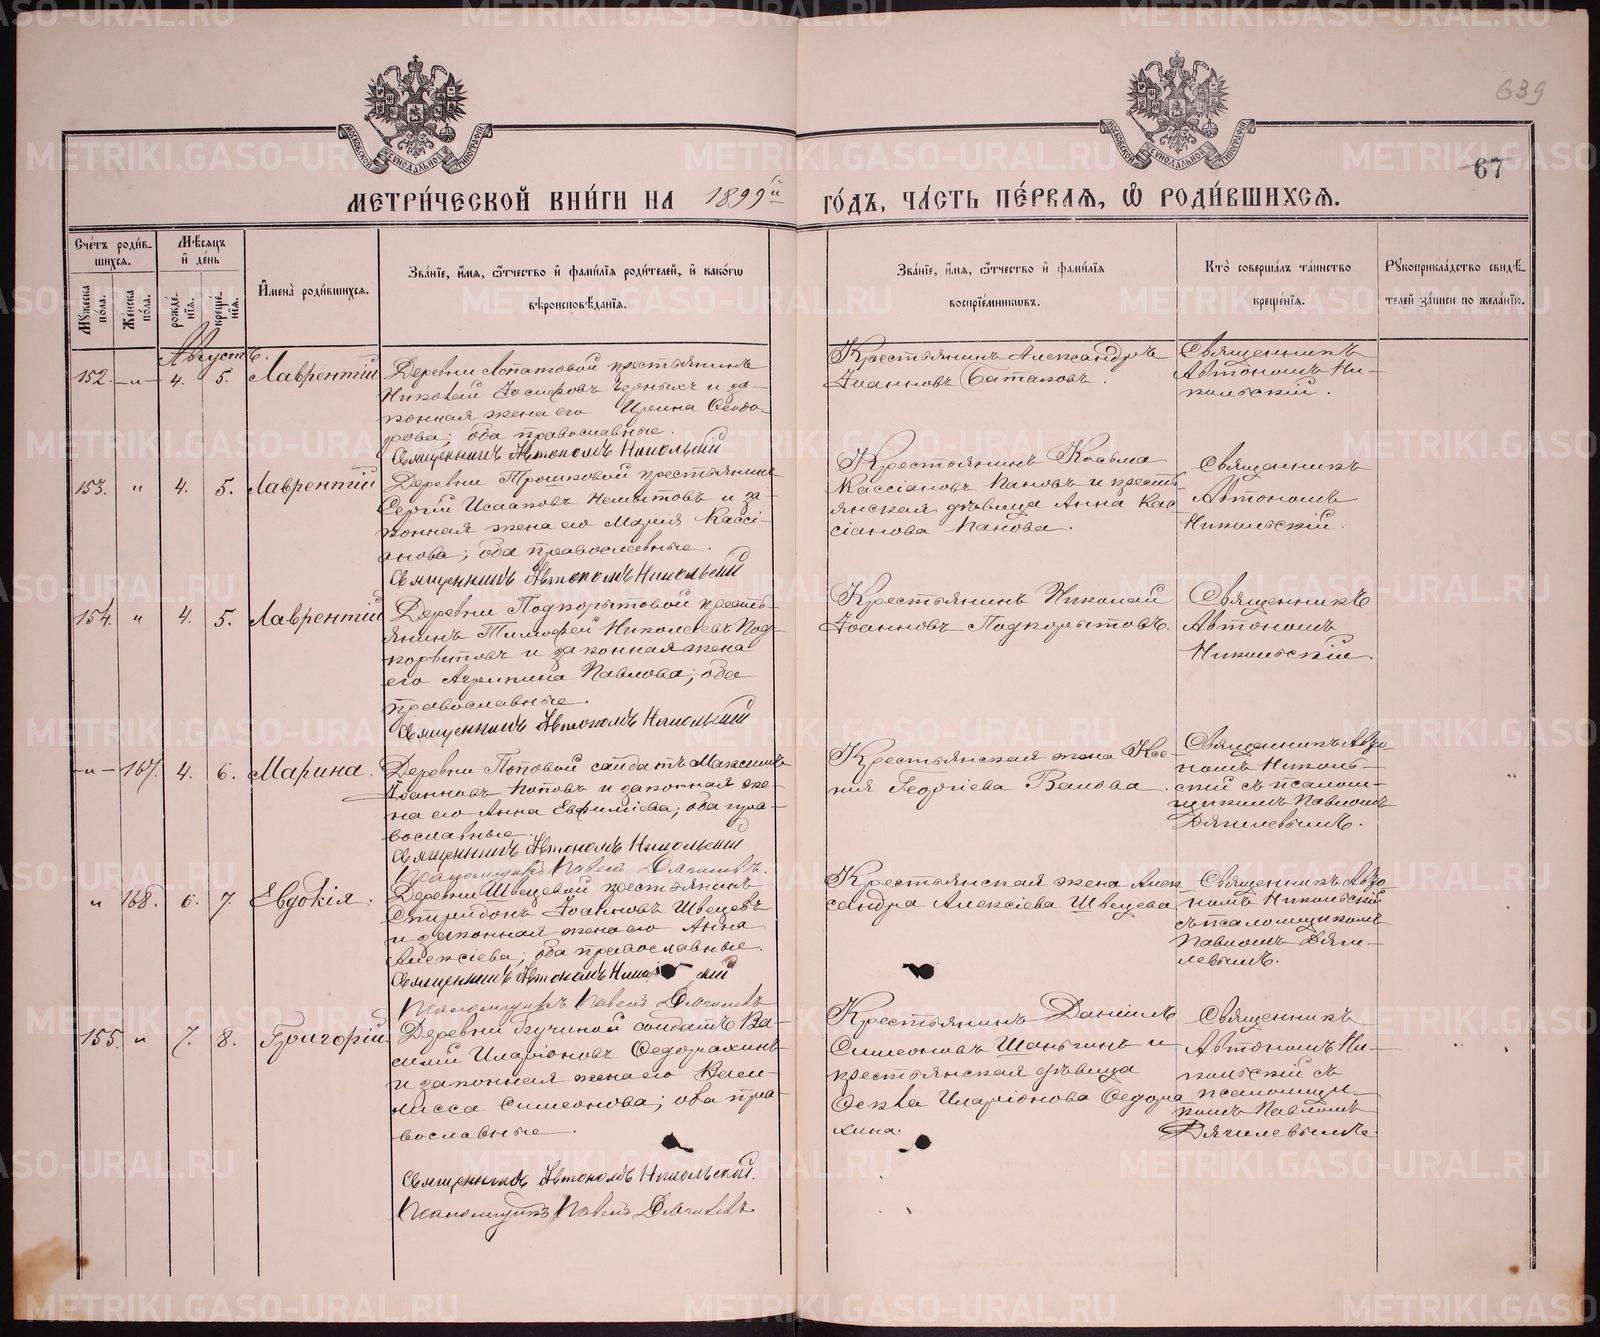 639
67
МОСКОВСКОЙ СѴНОДАЛЬНОЙ ТИПОГРАФІИ
МОСКОВСКОЙ СѴНОДАЛЬНОЙ ТИПОГРАФІИ
МЕТРИ́ЧЕСКОЙ КНИ́ГИ НА 1899й
ГО́ДЪ, ЧА́СТЬ ПЕ́РВАѦ, Ѽ РОДИ́ВШИХСѦ.
Сче́тъ роди́в-
шихсѧ.
Мѣ́сѧцъ
и҆ де́нь
И҆мена̀ роди́вшихсѧ.
Зва́нїе, и҆́мѧ, ѻ҆́тчество и҆ фами́лїѧ роди́телей, и҆ како́гѡ
вѣроисповѣ́данїѧ.
Мꙋ́жеска по́ла.
Же́нска по́ла.
рожде́нїѧ.
креще́нїѧ.
Зва́нїе, и҆́мѧ, ѻ҆́тчество и҆ фами́лїѧ
воспрїе́мникѡвъ.
Кто̀ соверша́лъ та́инство
креще́нїѧ.
Рꙋкоприкла́дство свидѣ́-
телей за́писи по жела́нїю.
Августъ.
152. —„— 4. 5. Лаврентій
Деревни Лопатовой крестьянинъ
Николай Іосифовъ и за-
конная жена его Ирина Ѳеодо-
рова; оба православные.
Священникъ Автономъ Никольскій
Крестьянинъ Александръ
Іоанновъ Батаковъ.
Священникъ
Автономъ Ни-
кольскій.
153. „ 4. 5. Лаврентій
Деревни Трошковой крестьянинъ
Сергій Исааковъ Немытовъ и за-
конная жена его Марія Кассі-
анова; оба православные.
Священникъ Автономъ Никольскій
Крестьянинъ Косьма
Кассіановъ Пановъ и кресть-
янская дѣвица Анна Кас-
сіанова Панова.
Священникъ
Автономъ
Никольскій.
154. „ 4. 5. Лаврентій
Деревни Подкорытовой кресть-
янинъ Тимоѳей Николаевъ Под-
корытовъ и законная жена
его Агрипина Павлова; оба
православные.
Священникъ Автономъ Никольскій
Крестьянинъ Николай
Іоанновъ Подкорытовъ.
Священникъ
Автономъ
Никольскій.
—„— 167. 4. 6. Марина.
Деревни Поповой солдатъ Максимъ
Іоанновъ Поповъ и законная же-
на его Анна Евфиміева; оба пра-
вославные.
Священникъ Автономъ Никольскій
Псаломщикъ Павелъ Дягилевъ.
Крестьянская жена Ксе-
нія Георгіева Валова.
Священникъ Авто-
номъ Николь-
скій съ псалом-
щикомъ Павломъ
Дягилевымъ.
„ 168. 6. 7. Евдокія.
Деревни Швецовой крестьянинъ
Спиридонъ Іоанновъ Швецовъ
и законная жена его Анна
Алексіева; оба православные.
Священникъ Автономъ Никольскій
Псаломщикъ Павелъ Дягилевъ
Крестьянская жена Алек-
сандра Алексіева Швецова
Священникъ Авто-
номъ Никольскій
съ псаломщикомъ
Павломъ Дяги-
левымъ.
155. „ 7. 8. Григорій.
Деревни солдатъ Ва-
силій Иларіоновъ Ѳедорахинъ
и законная жена его Васи-
лисса Симеонова; оба пра-
вославные.
Священникъ Автономъ Никольскій.
Псаломщикъ Павелъ Дягилевъ
Крестьянинъ Даніилъ
Симеоновъ Шаньгинъ и
крестьянская дѣвица
Ѳекла Иларіонова Ѳедора-
хина.
Священникъ
Автономъ Ни-
кольскій съ
псаломщи-
комъ Павломъ
Дягилевымъ.
METRIKI.GASO-URAL.RU